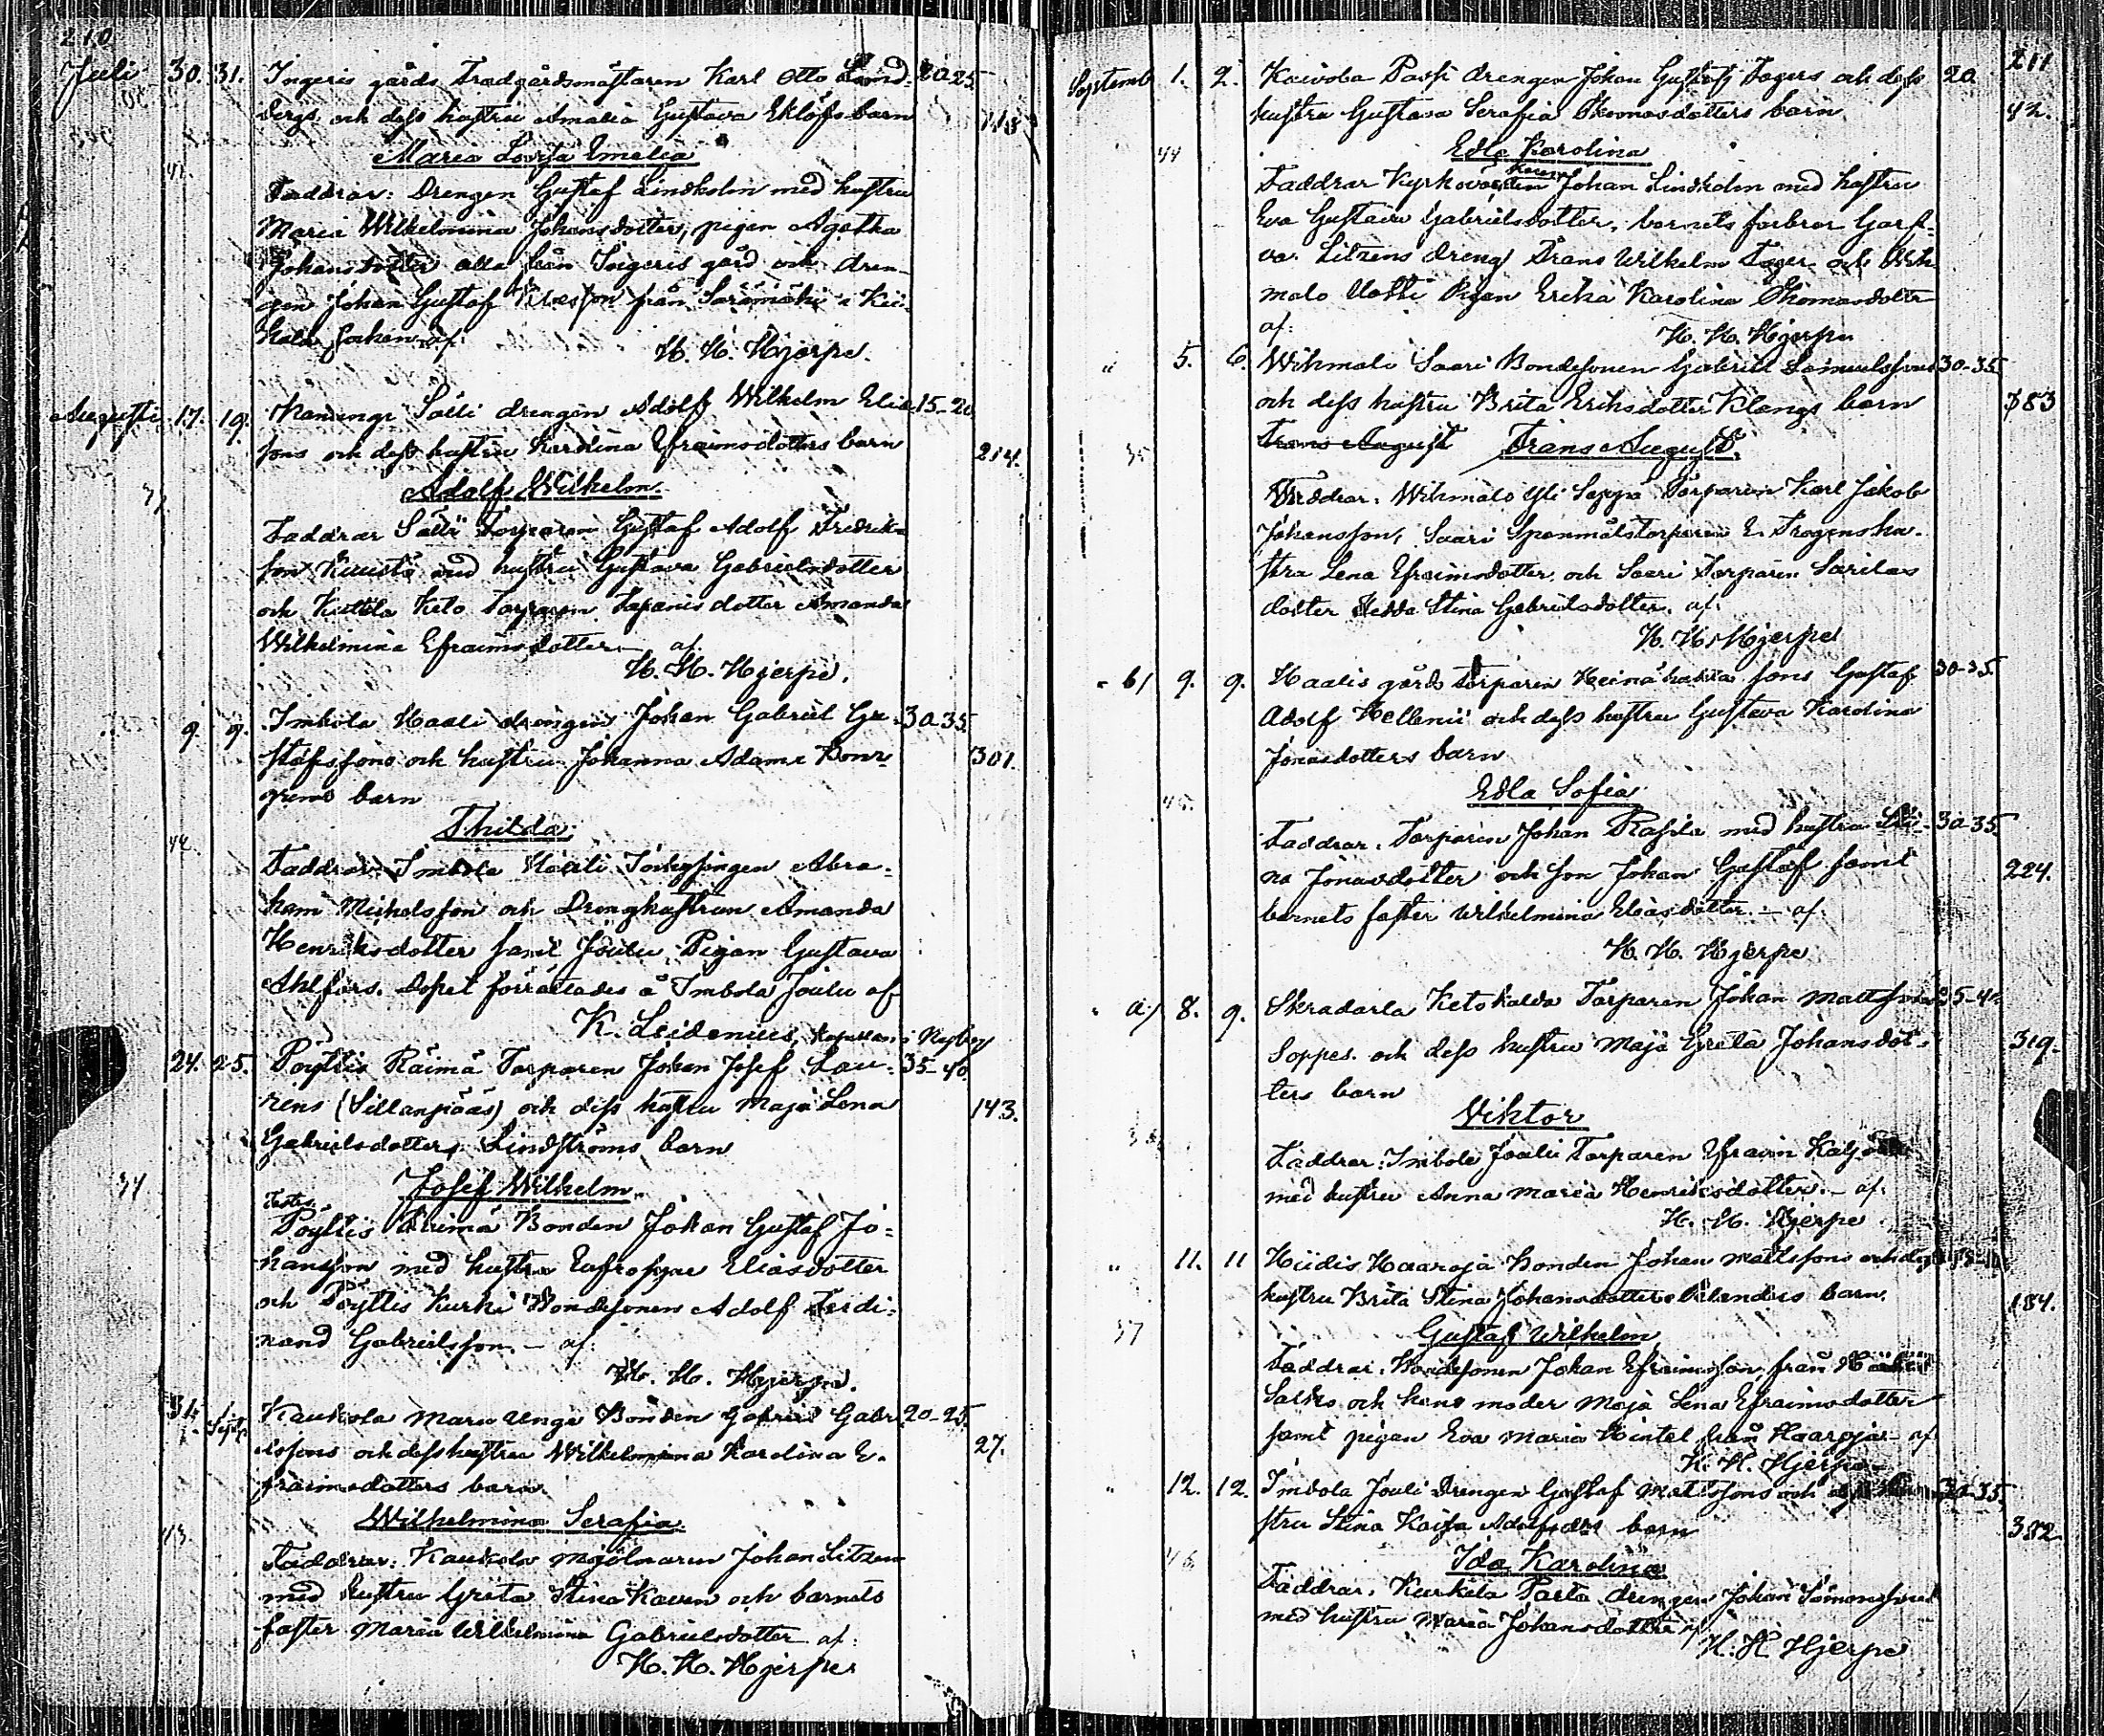 210
Juli 30. 31. Ingeris gårds Trädgårdsmästaren Karl Otto Lind- 20-25
bergs och dess hustru Amalia Gustava Eklöfs barn 118
Maria Lovisa Emelia
42.
Faddrar: Drengen Gustaf Lindholm med hustru
Maria Wilhelmina Johansdotter, pigan Agatha
Johansdotter alla från Ingeris gård och dren-
gen Johan Gustaf från Saramäki i Kii-
kala socken af:
H. H. Hjerpe.
Augusti 17. 19. Sälli drengen Adolf Wilhelm Elias 15-20
sons och dess hustru Karolina Efraimsdotters barn 214.
Adolf Wilhelm.
Faddrar Sälli Torparen Gustaf Adolf Fredriks-
son med hustru Gustava Gabrielsdotter
och Kuttila Keto Torparen Tapanis dotter Amanda
Wilhelmina Efraimsdotter - af.
H. H. Hjerpe.
9. 9. Imbola Haali drengen Johan Gabriel Gu- 30-35
stafssons och hustru Johanna Adama Bonr- 301.
grens barn
Thilda.
44.
Faddrar: Imbola Haali Abra-
ham Michelsson och Dränghustrun Amanda
Henriksdotter samt Joulu Pigan Gustava
Ahlfors. Dopet förrättades å Imbola Joulu af
K. Leidenius, Kapellan i Nagby
24. 25. Pöyttis Räimä Torparen Johan Josef Lau- 35-40
rens (Sillanpääs) och dess hustru Maja Lena 143.
Gabrielsdotter Lindströms barn
Josef Wilhelm.
34
Pöyttis Räimä Bonden Johan Gustaf Jo-
hansson med hustru Eufrosyne Eliasdotter
och Pöyttis Kurki Bondesonen Adolf Ferdi-
nand Gabrielsson. - af:
H. H. Hjerpe.
31. Sept. Kaukola Maru unga Bonden Gabriel Gabri 20-25
elssons och dess hustru Wilhelmina Karolina E- 27.
fraimsdotters barn.
Wilhelmina Serafia
43.
Faddrar: Kaukola Mjölnaren Johan Litzen
med hustru Greta Stina Kaven och barnets
faster Maria Wilhelmina Gabrielsdotter af:
H. H. Hjerpe
211
Septemb 1. 2. Koivola Paski drengen Johan Gustaf Fagers och dess 20
hustru Gustava Serafia Thomasdotters barn 42.
44
Edla Karolina
Faddrar Kyrkovärden Johan Lindholm med hustru
Eva Gustava Gabrielsdotter, barnets farbror
Litzens dreng Frans Wilhelm Fager och Wih-
malo Uotti Pigan Erika Karolina Thomasdotter
af:
H. H. Hjerpe
" 5. 6. Wihmalo Saari Bondesonen Gabriel Samuelssons 30-35
och dess hustru Brita Eriksdotter Klangs barn 383
Frans August Frans August.
35
Faddrar: Wihmalo Yli Seppä Torparen Karl Jakob
Johansson, Saari Spanmålstorparen E. Trogens hu-
stru Lena Efraimsdotter och Saari Torparen Sarilas
dotter Hedda Stina Gabrielsdotter. af:
H. H. Hjerpe
" b) 9. 9. Haalis gårds torparen sons Gustaf 30-35
Adolf Hellenii och dess hustru Gustava Karolina
Jonasdotters barn
Edla Sofia
45.
Faddrar: Torparen Johan Rasila med hustru Sti- 30-35
na Jonasdotter och son Johan Gustaf samt 224.
barnets faster Wilhelmina Eliasdotter. - af:
H. H. Hjerpe
" a) 8. 9. Skradarla Ketohalda Torparen Johan Mattssons 35-40
Soppes och dess hustru Maja Greta Johansdot- 319.
ters barn
Viktor
36
Faddrar: Imbola Joulu Torparen Efraim
med hustru Anna Maria Henriksdotter. - af:
H. H. Hjerpe
" 11. 11 Hiidis Haaroja Bonden Johan Mattssons och dess
hustru Brita Stina Johansdotter barn 184.
37
Gustaf Wilhelm
Faddrar: Bondesonen Johan Efraimsson från
Salko och hans moder Maja Lena Efraimsdotter
samt pigan Eva Maria Hintel från Haaroja - af
H. H. Hjerpe
" 12. 12. Imbola Jouli Drengen Gustaf Mattssons och dess hu- 30-35.
stru Stina Kajsa Adolfsdrs barn 382.
46
Ida Karolina
Faddrar: Kurkela Parta drengen Johan Simonsson
med hustru Maria Johansdotter af:
H. H. Hjerpe